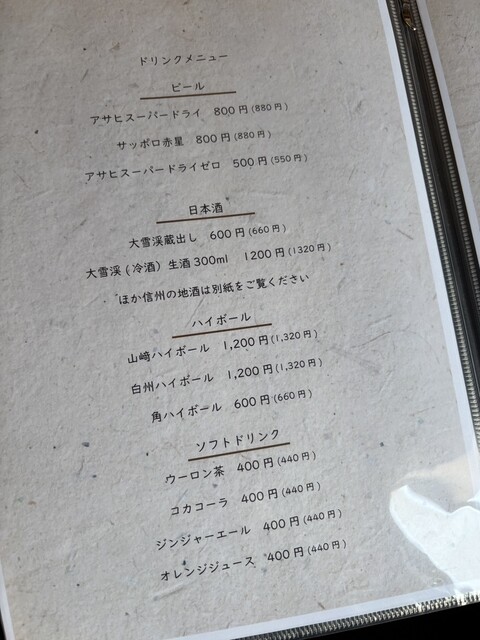 ドリンクメニュー
ビール
アサヒスーパードライ 800円(880円)
サッポロ赤星 800円(880円)
アサヒスーパードライゼロ 500円(550円)
日本酒
大雪渓蔵出し 600円(660円)
大雪渓(冷酒)生酒300ml 1200円(1320円)
ほか信州の地酒は別紙をご覧ください
ハイボール
山﨑ハイボール 1,200円(1,320円)
白州ハイボール 1,200円(1,320円)
角ハイボール 600円(660円)
ソフトドリンク
ウーロン茶 400円(440円)
コカコーラ 400円(440円)
ジンジャーエール 400円(440円)
オレンジジュース 400円(440円)